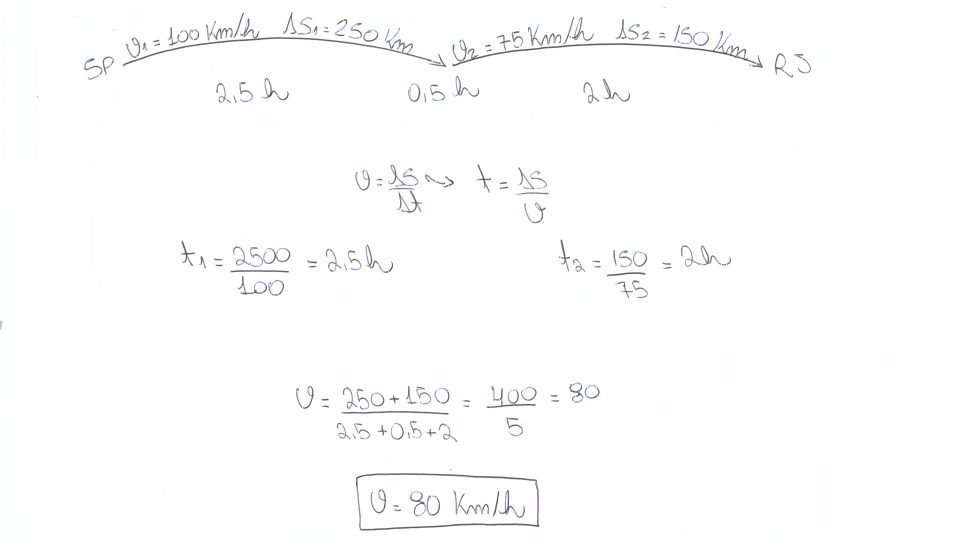 SP v1 = 100 Km/h ΔS1 = 250 Km v2 = 75 Km/h ΔS2 = 150 Km RJ
2,5 h 0,5 h 2h
v = ΔS/Δt ⇝ t = ΔS/v
t1 = 2500/100 = 2,5h t2 = 150/75 = 2h
v = 250 + 150/2,5 + 0,5 + 2 = 400/5 = 80
v = 80 Km/h